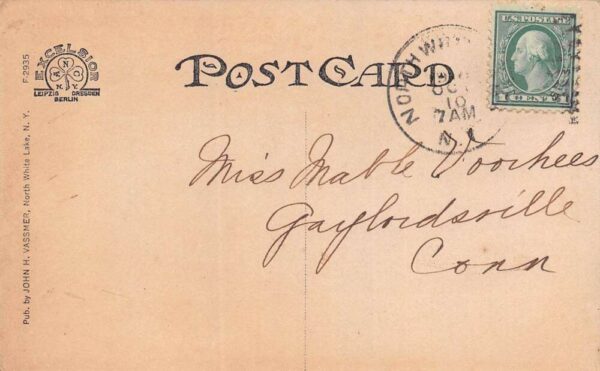 EXCELSIOR
A N C
N.Y.
LEIPZIG DRESDEN
BERLIN
F-2935
Pub. by JOHN H. VASSMER, North White Lake, N. Y.
POST CARD
NORTH WHI
OCT
10
7AM
N.Y.
U.S. POSTAGE
1 CENT 1
Miss Mable Voorhees
Gaylordsville
Conn